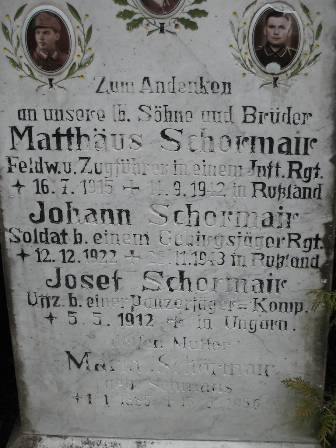 Zum Andenken
an unsere lb. Söhne und Brüder
Matthäus Schormair
Feldw. u. Zugführer in einem Inft. Rgt.
16. 7. 1915 11. 9. 1942 in Rußland
Johann Schormair
Soldat b. einem Gebirgsjäger Rgt.
12. 12. 1922 11. 1943 in Rußland
Josef Schormair
Uffz. b. einer Panzerjäger = Komp.
5. 5. 1912 in Ungarn.
deren Mutter
Maria Schormair
geb.